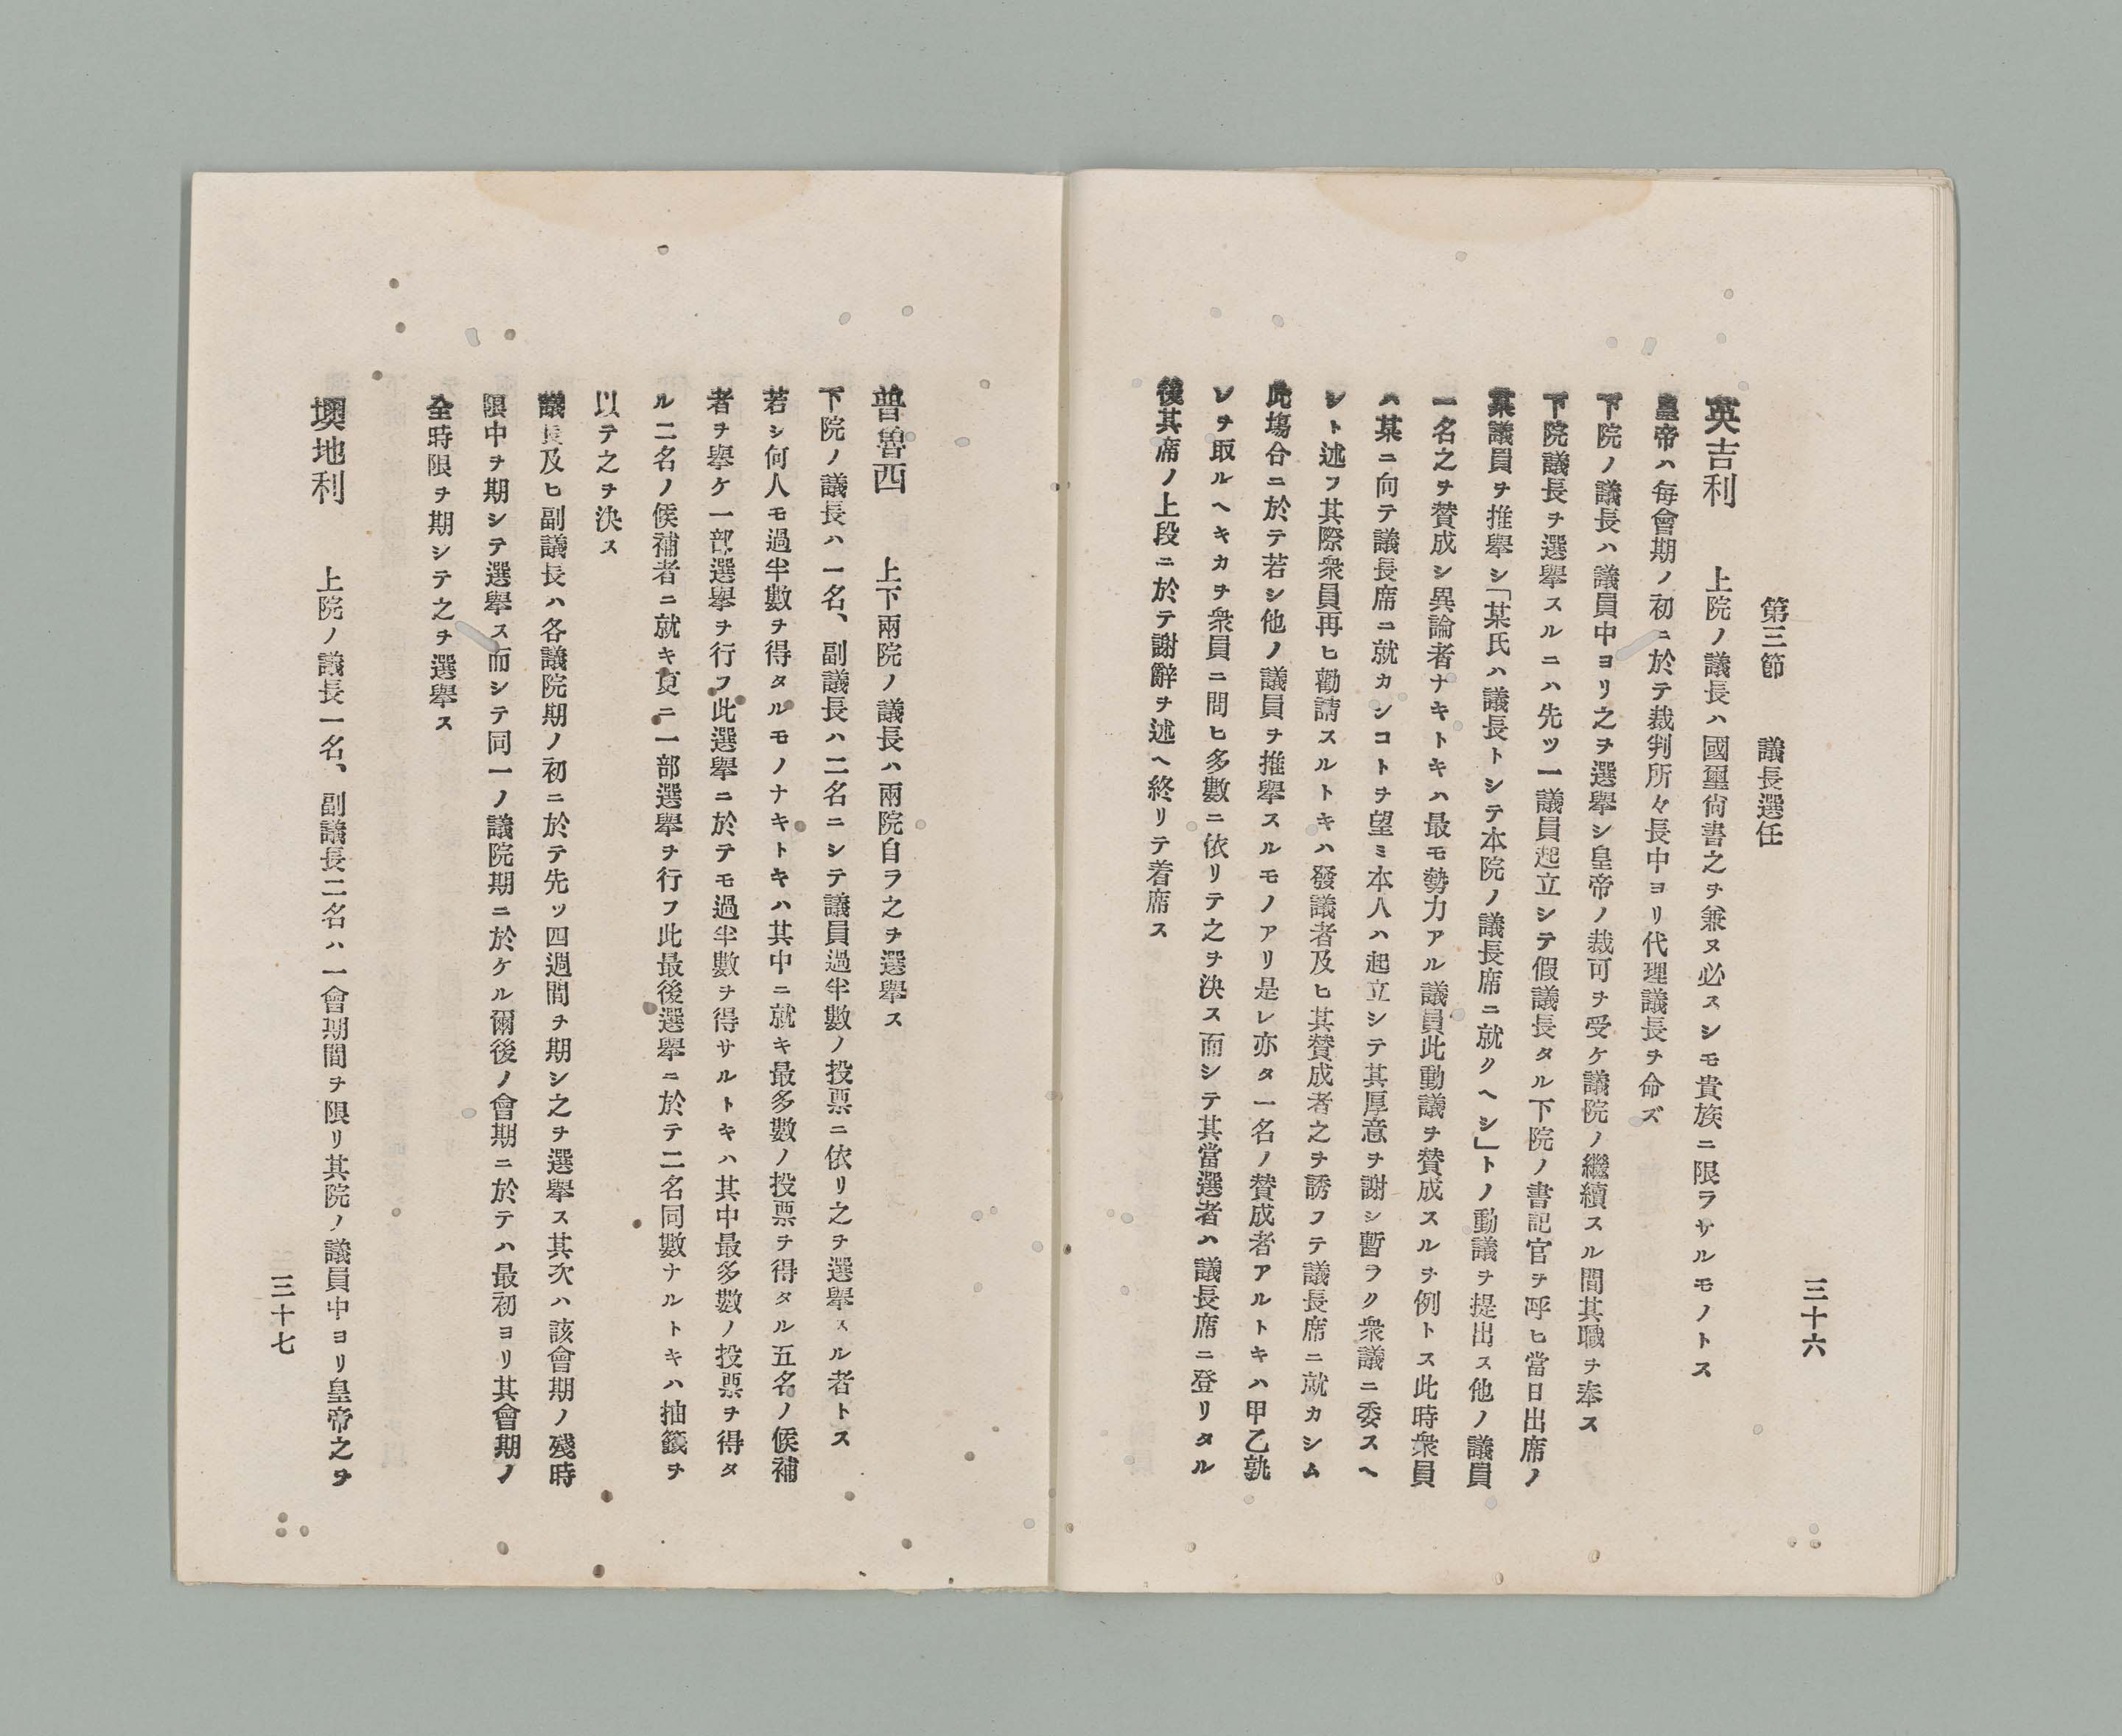 三十六
第三節　議長選任
英吉利　上院ノ議長ハ國璽尚書之ヲ兼ヌ必スシモ貴族ニ限ラサルモノトス
皇帝ハ毎會期ノ初ニ於テ裁判所々長中ヨリ代理議長ヲ命ズ
下院ノ議長ハ議員中ヨリ之ヲ選擧シ皇帝ノ裁可ヲ受ケ議院ノ繼續スル間其職ヲ奉ス
下院議長ヲ選擧スルニハ先ツ一議員起立シテ假議長タル下院ノ書記官ヲ呼ヒ當日出席ノ
某議員ヲ推擧シ「某氏ハ議長トシテ本院ノ議長席ニ就クヘシ」トノ動議ヲ提出ス他ノ議員
一名之ヲ賛成シ異論者ナキトキハ最モ勢力アル議員此動議ヲ賛成スルヲ例トス此時衆員
ハ某ニ向テ議長席ニ就カンコトヲ望ミ本人ハ起立シテ其厚意ヲ謝シ暫ラク衆議ニ委スヘ
シト述フ其際衆員再ヒ勸請スルトキハ發議者及ヒ其賛成者之ヲ誘フテ議長席ニ就カシム
此塲合ニ於テ若シ他ノ議員ヲ推擧スルモノアリ是レ亦タ一名ノ賛成者アルトキハ甲乙孰
レヲ取ルヘキカヲ衆員ニ問ヒ多數ニ依リテ之ヲ決ス而シテ其當選者ハ議長席ニ登リタル
後其席ノ上段ニ於テ謝辭ヲ述ヘ終リテ着席ス
普魯西　上下兩院ノ議長ハ兩院自ラ之ヲ選擧ス
下院ノ議長ハ一名、副議長ハ二名ニシテ議員過半數ノ投票ニ依リ之ヲ選擧スル者トス
若シ何人モ過半數ヲ得タルモノナキトキハ其中ニ就キ最多數ノ投票ヲ得タル五名ノ候補
者ヲ擧ケ一部選擧ヲ行フ此選擧ニ於テモ過半數ヲ得サルトキハ其中最多數ノ投票ヲ得タ
ル二名ノ候補者ニ就キ更ニ一部選擧ヲ行フ此最後選擧ニ於テ二名同數ナルトキハ抽籤ヲ
以テ之ヲ決ス
議長及ヒ副議長ハ各議院期ノ初ニ於テ先ツ四週間ヲ期シ之ヲ選擧ス其次ハ該會期ノ殘時
限中ヲ期シテ選擧ス而シテ同一ノ議院期ニ於ケル爾後ノ會期ニ於テハ最初ヨリ其會期ノ
全時限ヲ期シテ之ヲ選擧ス
墺地利　上院ノ議長一名、副議長二名ハ一會期間ヲ限リ其院ノ議員中ヨリ皇帝之ヲ
三十七